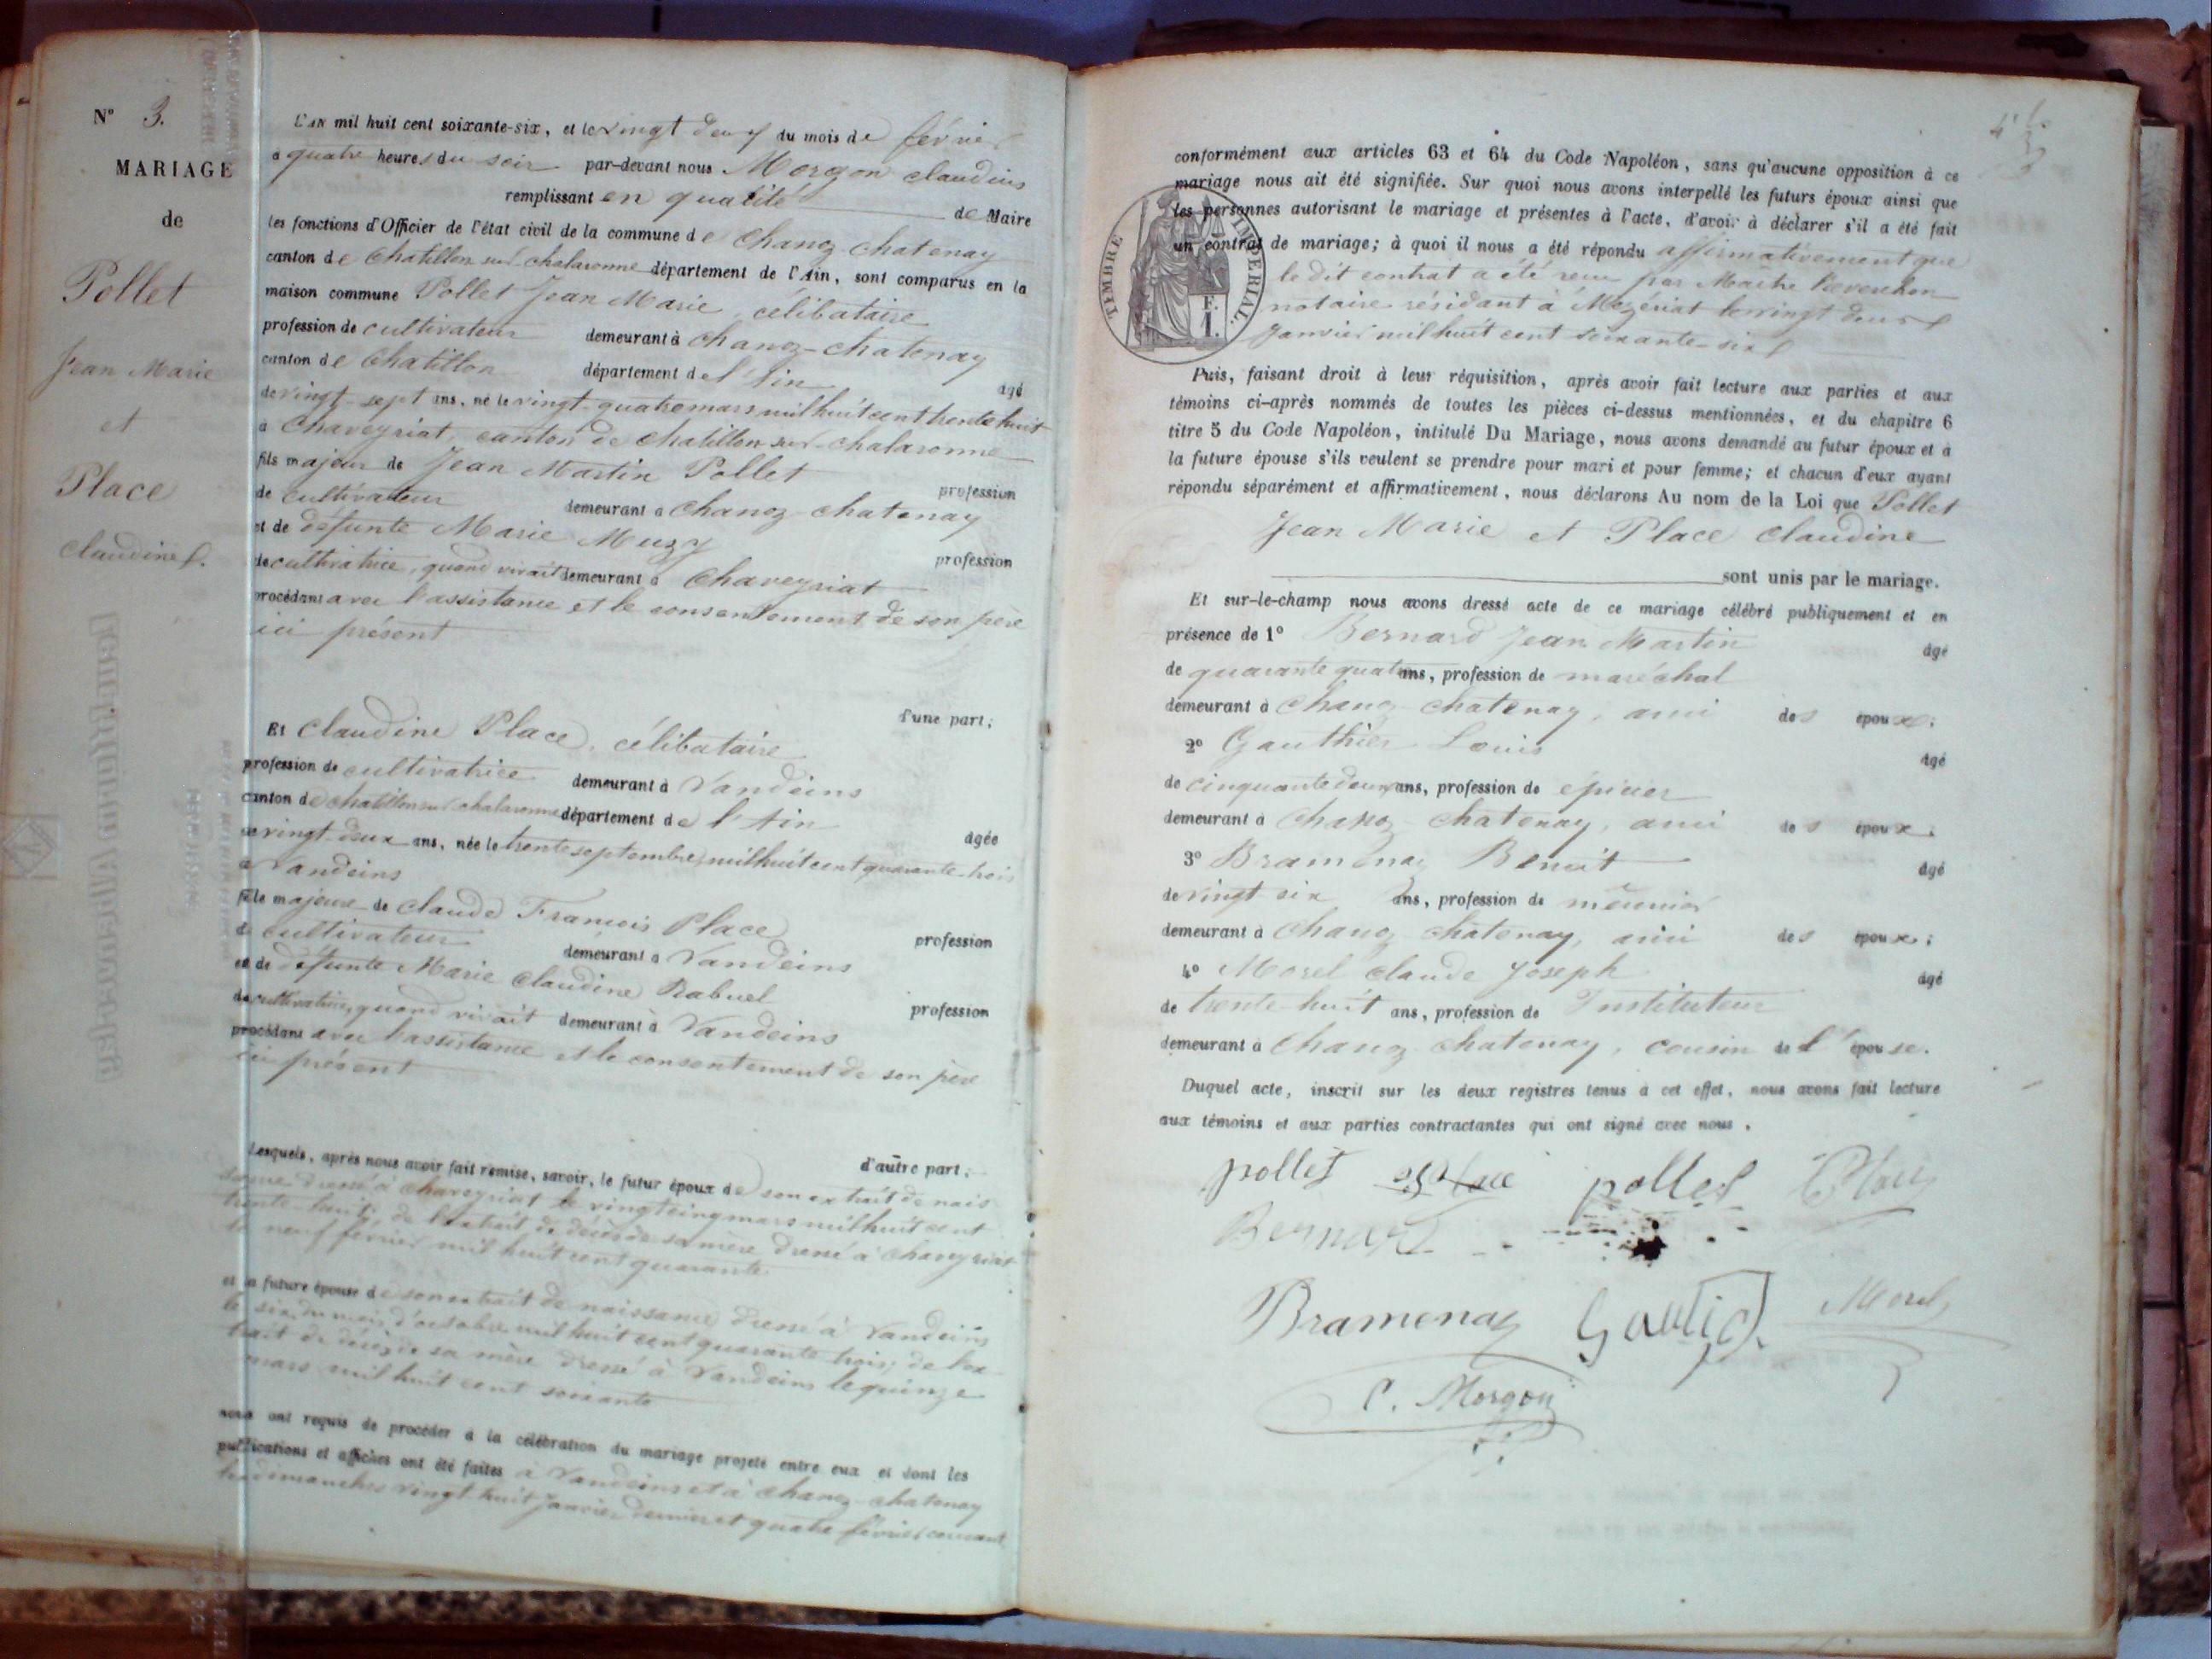 N° 3.
MARIAGE
de
Pollet
Jean Marie
et
Place
Claudine
L'AN mil huit cent soixante-six, et le vingt deux du mois de février
à quatre heures du soir par-devant nous Morgon Claudius
remplissant en qualité de Maire
les fonctions d'Officier de l'état civil de la commune de Chanoz-Chatenay
canton de Chatillon sur Chalaronne département de l'Ain, sont comparus en la
maison commune Pollet Jean Marie, célibataire
profession de cultivateur demeurant à Chanoz-Chatenay
canton de Chatillon département de l'Ain âgé
de vingt-sept ans, né le vingt-quatre mars mil huit cent trente huit
à Chaveyriat, canton de Chatillon sur Chalaronne
fils majeur de Jean Martin Pollet profession
de cultivateur demeurant à Chanoz-Chatenay
et de défunte Marie Muzy profession
de cultivatrice, quand vivait demeurant à Chaveyriat
procédant avec l'assistance et le consentement de son père
ici présent
d'une part;
Et Claudine Place, célibataire
profession de cultivatrice demeurant à Vandeins
canton de Chatillon sur Chalaronne département de l'Ain âgée
de vingt-deux ans, née le trente septembre mil huit cent quarante-trois
à Vandeins
fille majeure de Claude François Place profession
de cultivateur demeurant à Vandeins
et de défunte Marie Claudine Rabuel profession
de cultivatrice, quand vivait demeurant à Vandeins
procédant avec l'assistance et le consentement de son père
ici présent
d'autre part;
Lesquels, après nous avoir fait remise, savoir, le futur époux de son extrait de nais
sance dressé à Chaveyriat le vingt cinq mars mil huit cent
trente-huit; de l'extrait de décès de sa mère dressé à Chaveyriat
le neuf février mil huit cent quarante
et la future épouse de son extrait de naissance dressé à Vandeins
le six du mois d'octobre mil huit cent quarante trois; de l'ex-
trait de décès de sa mère dressé à Vandeins le quinze
mars mil huit cent soixante
nous ont requis de procéder à la célébration du mariage projeté entre eux et dont les
publications et affiches ont été faites à Vandeins et à Chanoz-Chatenay
les dimanches vingt-huit Janvier dernier et quatre février courant
conformément aux articles 63 et 64 du Code Napoléon, sans qu'aucune opposition à ce
mariage nous ait été signifiée. Sur quoi nous avons interpellé les futurs époux ainsi que
les personnes autorisant le mariage et présentes à l'acte, d'avoir à déclarer s'il a été fait
un contrat de mariage; à quoi il nous a été répondu affirmativement que
le dit contrat a été reçu par Maître
notaire résidant à Mézériat le vingt deux
Janvier mil huit cent soixante-six
TIMBRE IMPERIAL.
F.
1.
Puis, faisant droit à leur réquisition, après avoir fait lecture aux parties et aux
témoins ci-après nommés de toutes les pièces ci-dessus mentionnées, et du chapitre 6
titre 5 du Code Napoléon, intitulé Du Mariage, nous avons demandé au futur époux et à
la future épouse s'ils veulent se prendre pour mari et pour femme; et chacun d'eux ayant
répondu séparément et affirmativement, nous déclarons Au nom de la Loi que Pollet
Jean Marie et Place Claudine
sont unis par le mariage.
Et sur-le-champ nous avons dressé acte de ce mariage célébré publiquement et en
présence de 1° Bernard Jean Martin âgé
de quarante quatre ans, profession de maréchal
demeurant à Chanoz-Chatenay, ami des époux;
2° Gauthier Louis âgé
de cinquante deux ans, profession de épicier
demeurant à Chanoz-Chatenay, ami des époux;
3° Bramenaz Benoit âgé
de vingt six ans, profession de meunier
demeurant à Chanoz Chatenay, ami des époux;
4° Morel Claude Joseph âgé
de trente-huit ans, profession de Instituteur
demeurant à Chanoz-Chatenay, cousin de l'épouse.
Duquel acte, inscrit sur les deux registres tenus à cet effet, nous avons fait lecture
aux témoins et aux parties contractantes qui ont signé avec nous.
pollet pollet
Bernard
Bramenaz Morel
C. Morgon